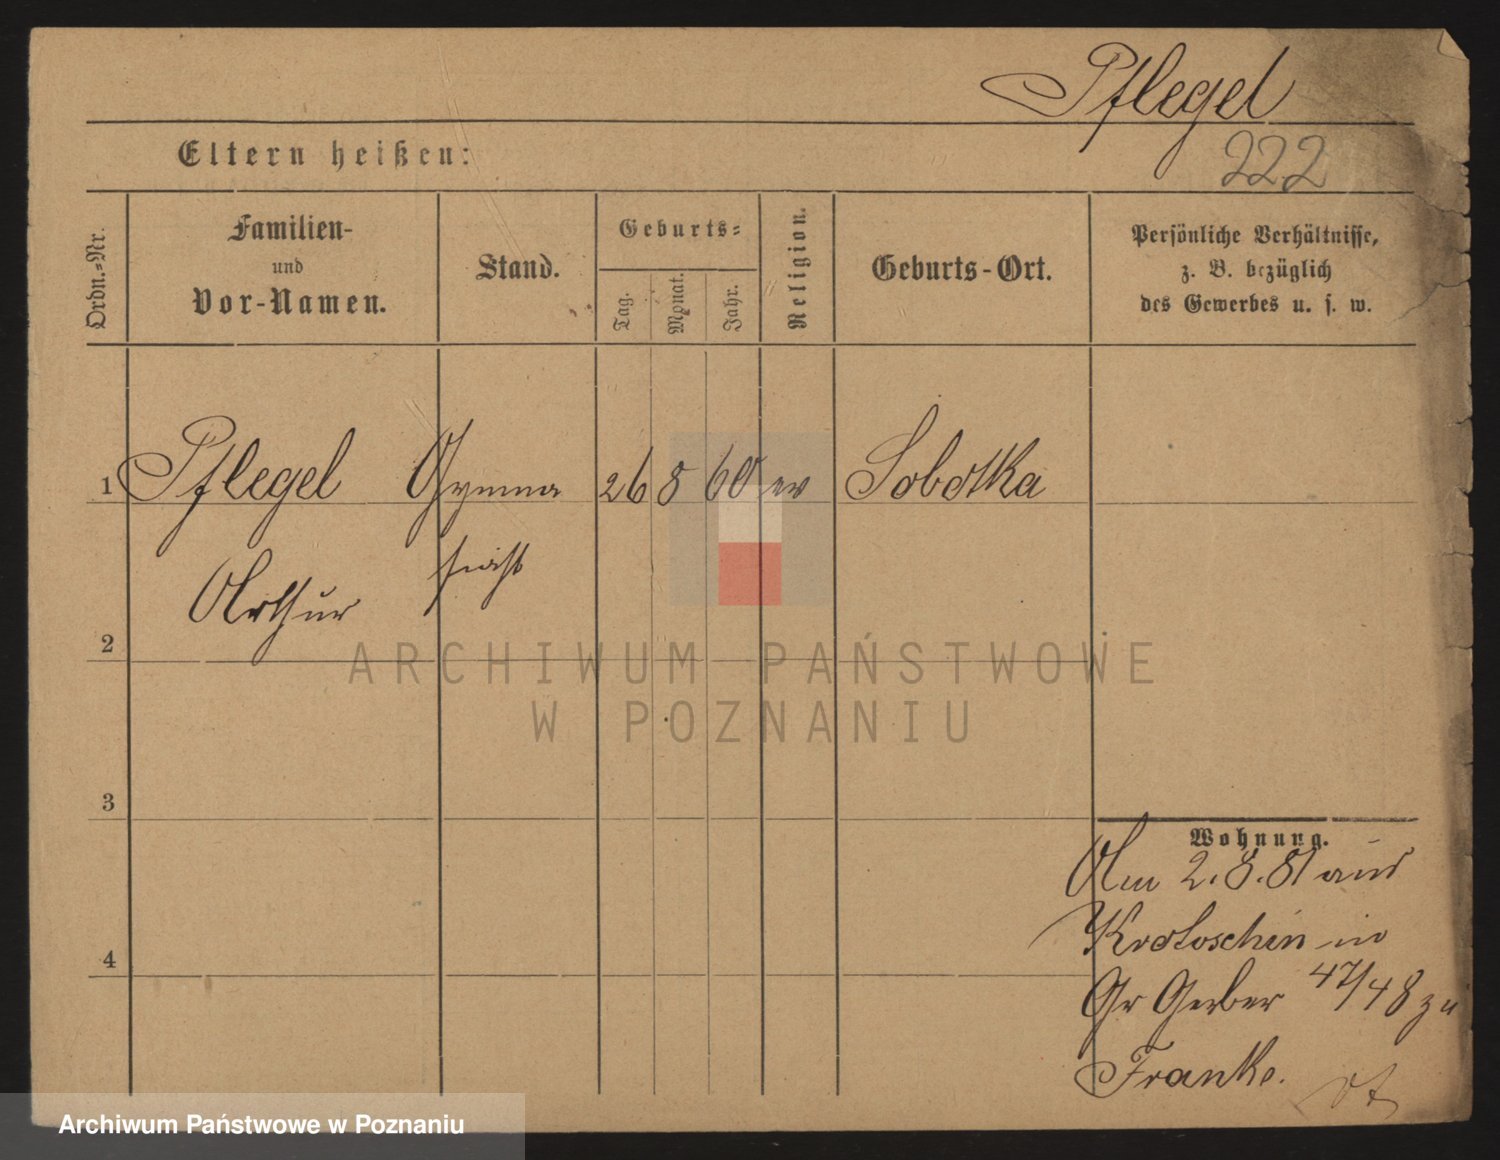 Pflegel
222
Eltern heißen:
Ordn.-Nr.
Familien-
und
Vor-Namen.
Stand.
Geburts-
Tag.
Monat.
Jahr.
Religion.
Geburts-Ort.
Persönliche Verhältnisse,
z. B. bezüglich
des Gewerbes u. s. w.
1 Pflegel Gymna 26 8 60 ev Sobotka
siast
Arthur
2
ARCHIWUM PAŃSTWOWE
W POZNANIU
3
Wohnung.
Am 2.8.81 aus
Krotoschin in
4
Gr Gerber 47/48 zu
Franke.
Archiwum Państwowe w Poznaniu